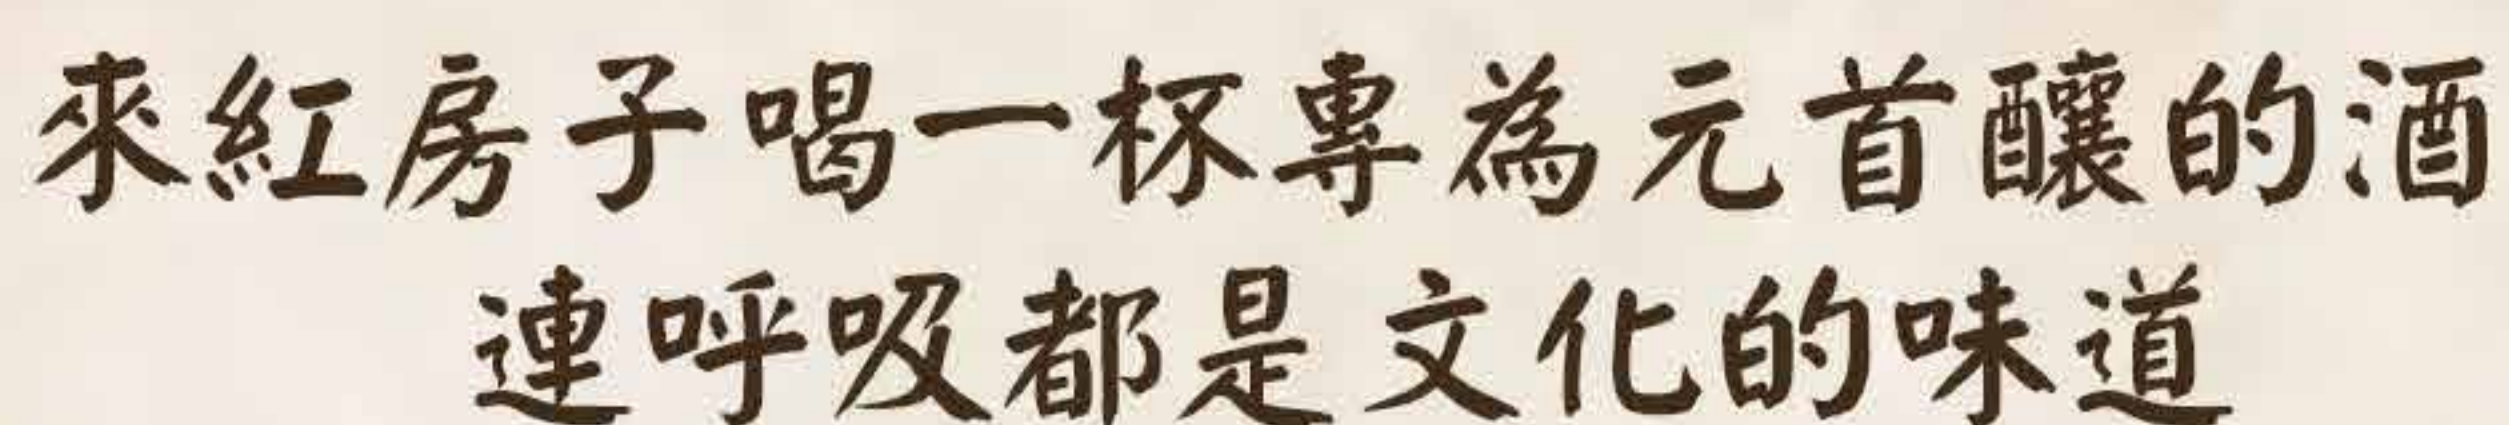 來紅房子喝一杯專為元首釀的酒
連呼吸都是文化的味道